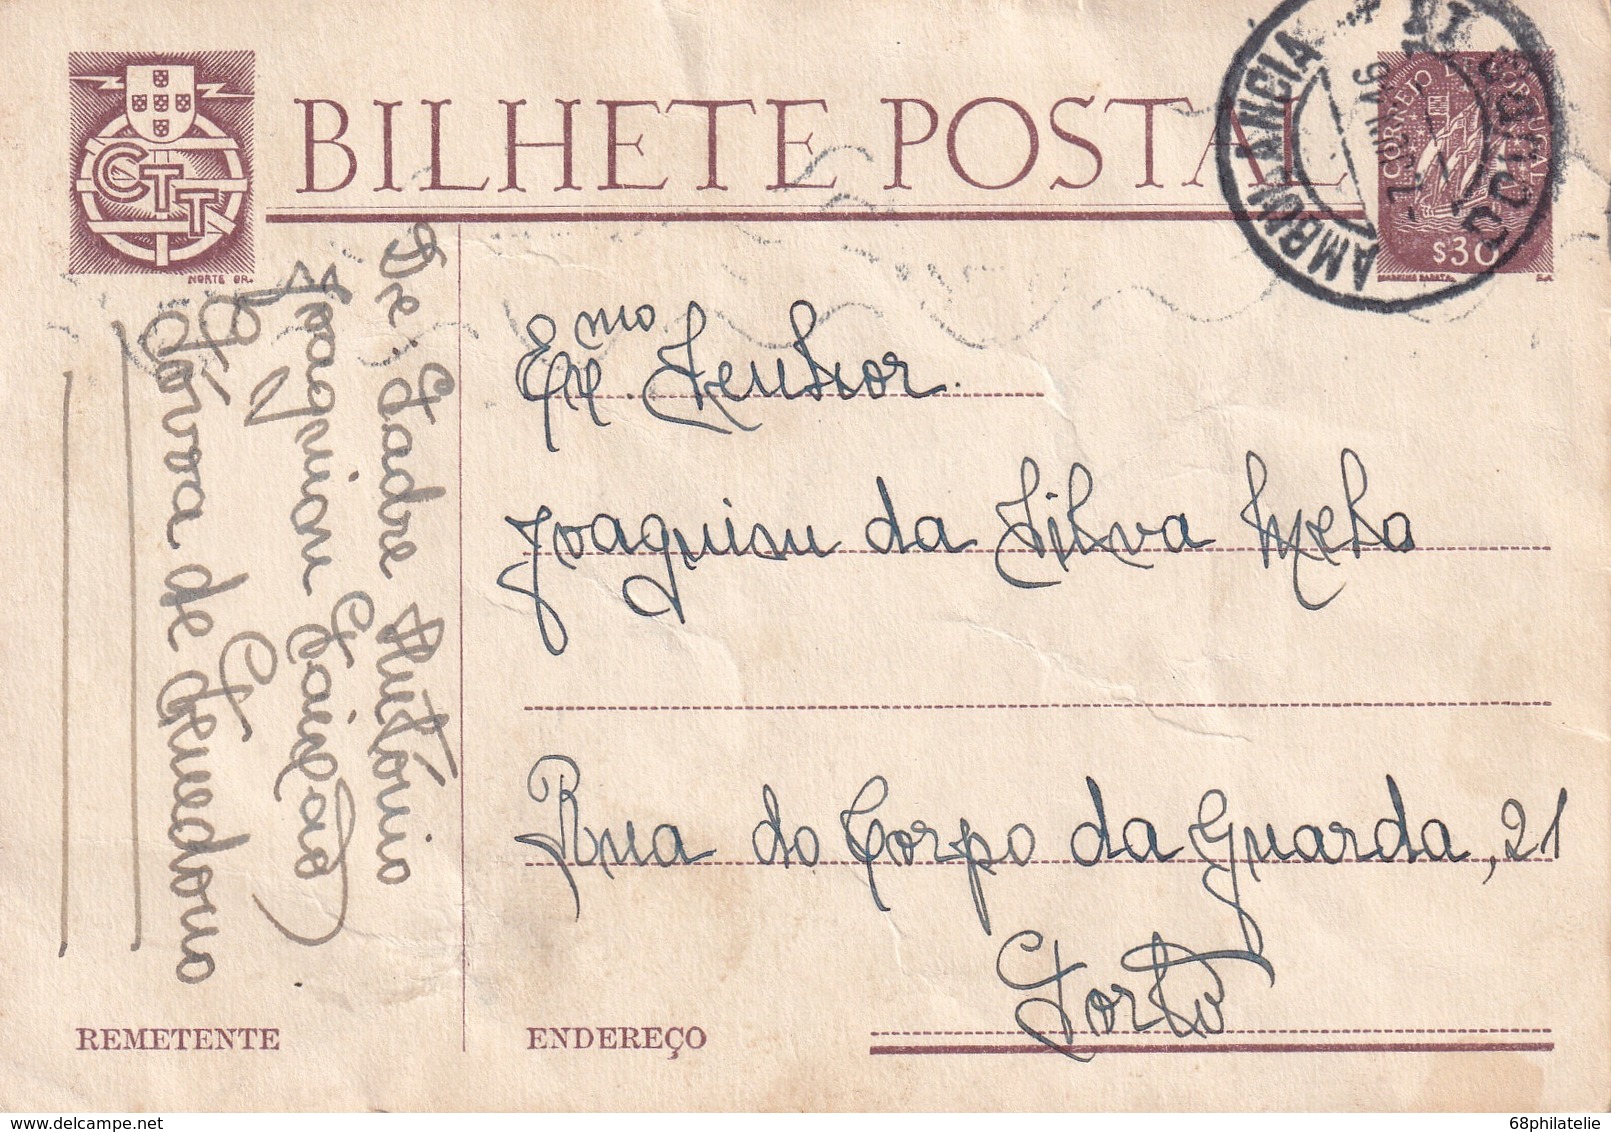 BILHETE POSTAL
CTT
NORTE GR.
CORREIO DE PORTUGAL
$30
AMBULANCIA
Ex.mo Senhor.
Joaquim da Silva Melo
Rua do Corpo da Guarda, 21
Porto
De: Padre António
Joaquim
Póvoa de Penedono
REMETENTE
ENDEREÇO
68philatelie